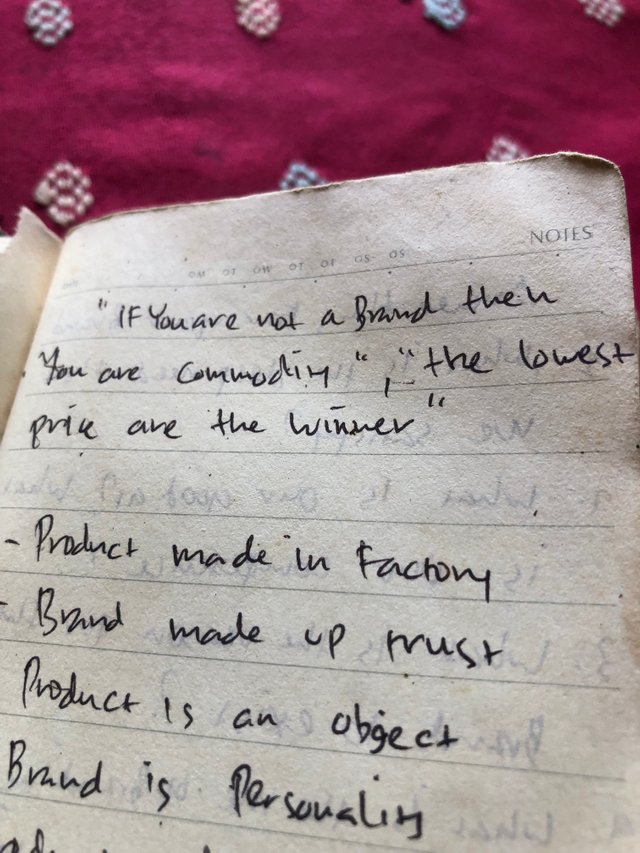 NOTES
"IF You are not a Brand then
You are commodity", "the lowest
price are the winner"
- Product made in Factory
- Brand made up trust
Product is an object
Brand is Personality